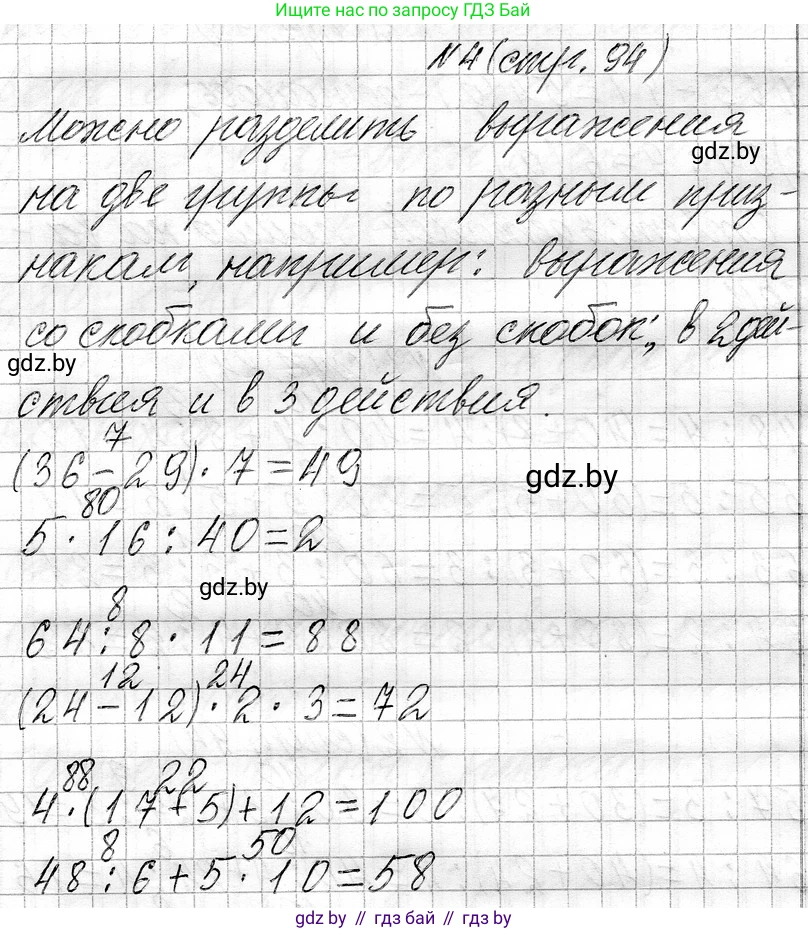 Ищите нас по запросу ГДЗ Бай
№4 (стр. 94)
Можно разделить выражения
gdz.by
на две группы по разным приз-
накам, например: выражения
со скобками и без скобок; в 2 дей-
gdz.by
ствия и в 3 действия.
7
(36-29)·7=49
gdz.by
80
5·16:40=2
gdz.by
8
64:8·11=88
12 24
(24-12)·2·3=72
88 22
4·(17+5)+12=100
8 50
48:6+5·10=58
gdz.by // гдз бай // гдз.by